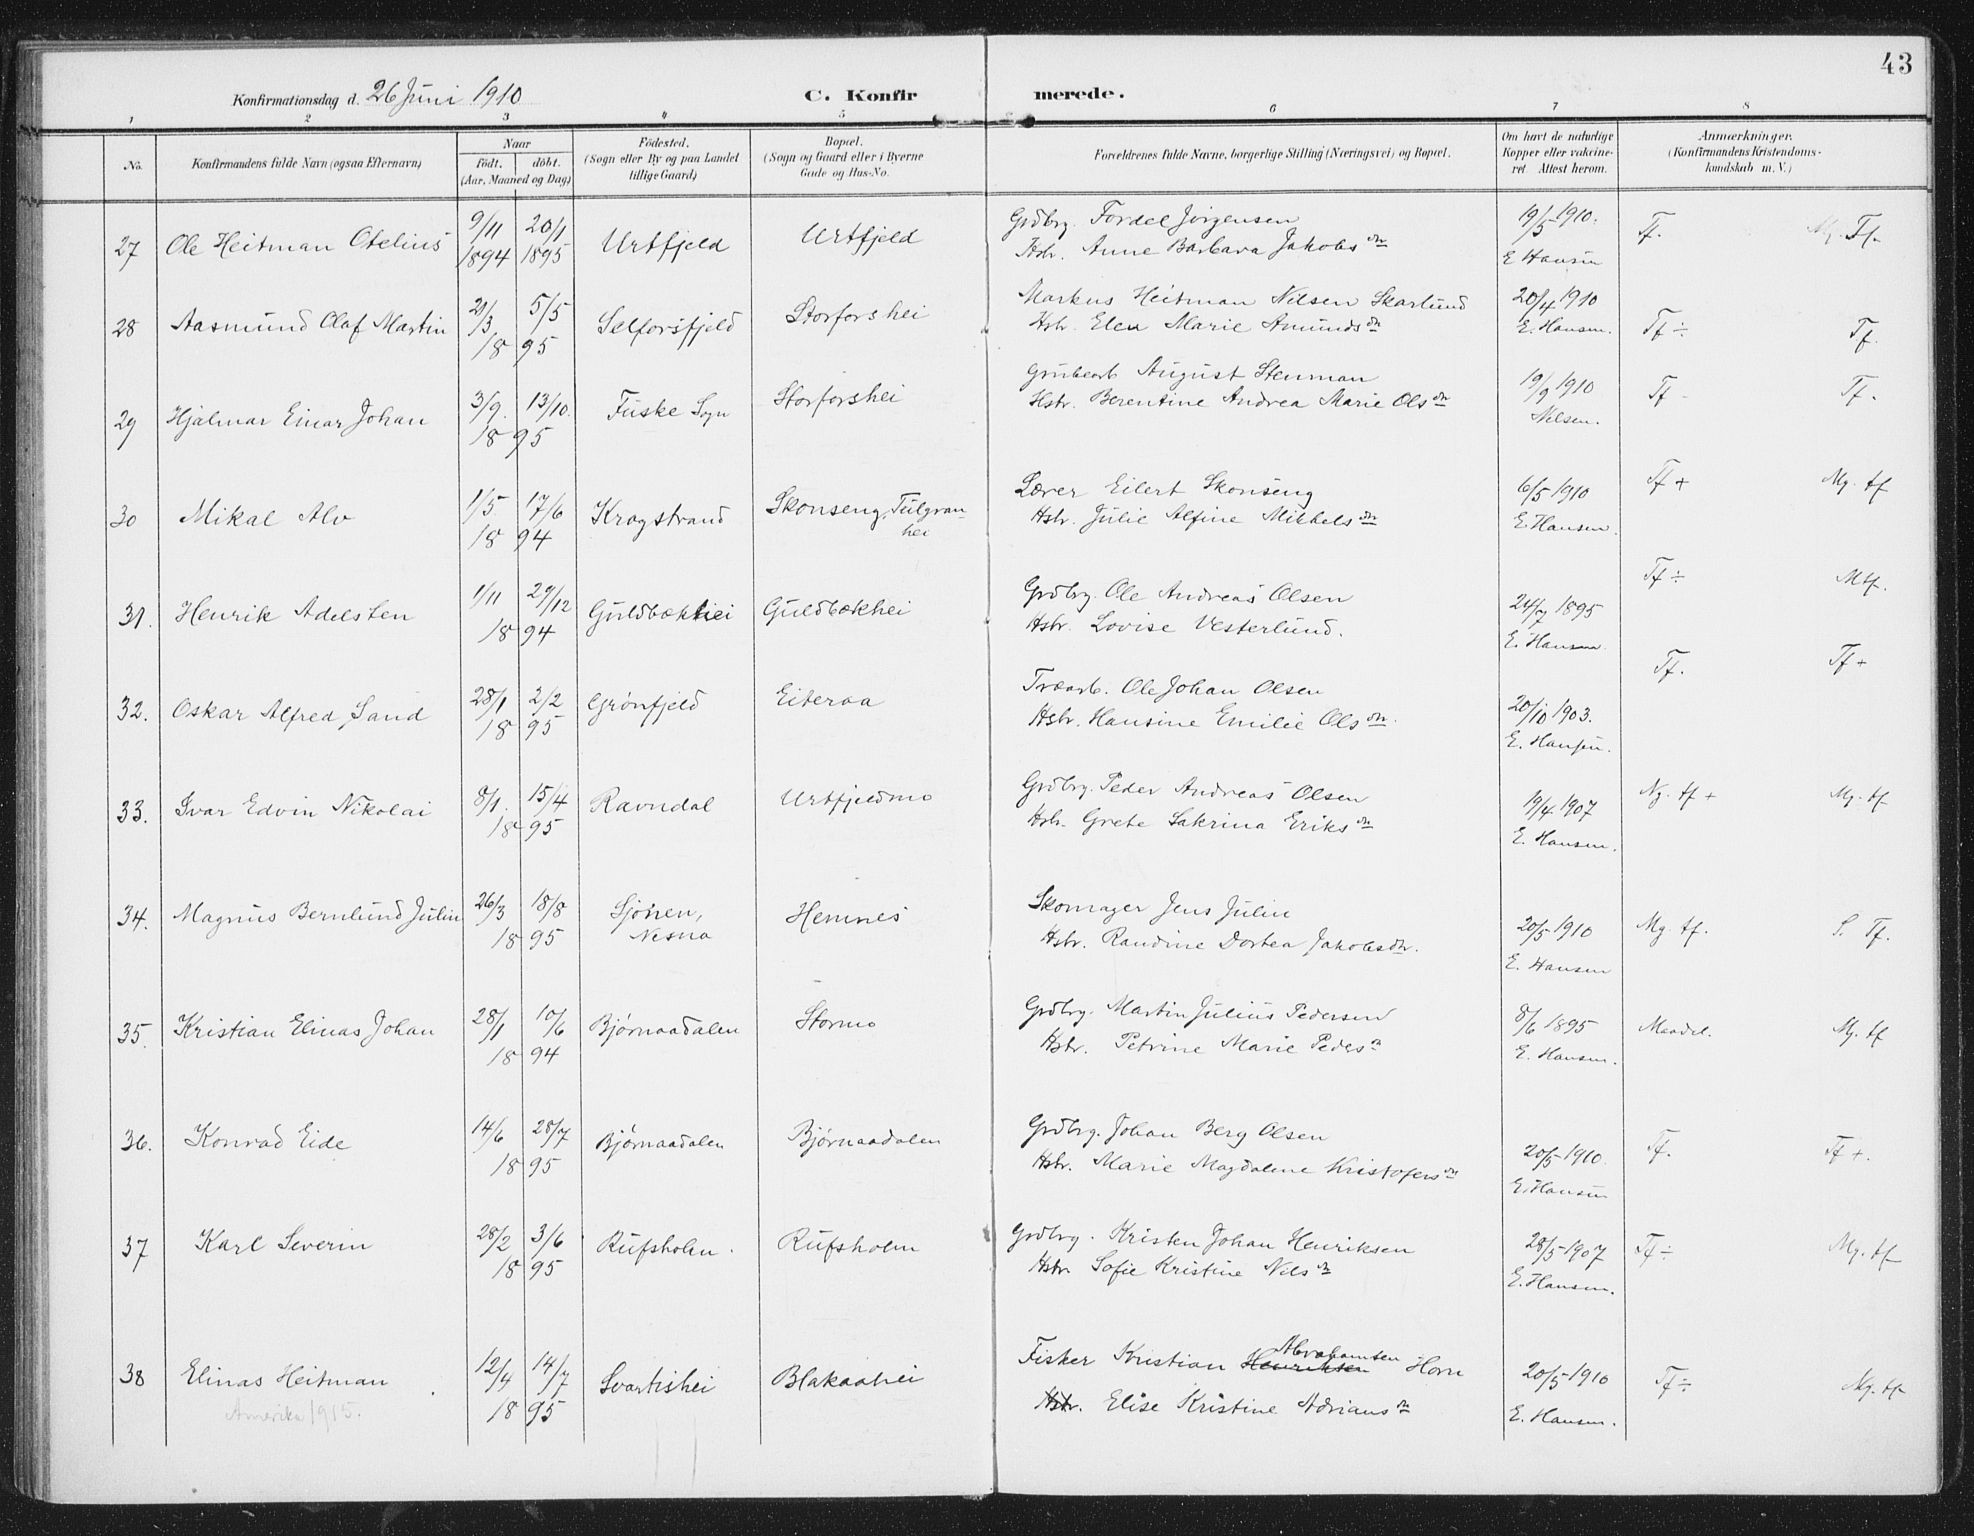 43
Konfirmationsdag d. 26 Juni 1910 C. Konfirmerede.
1 2 3 4 5 6 7 8
No. Konfirmandens fulde Navn (ogsaa Efternavn) Naar Født. døbt. (Aar, Maaned og Dag) Fødested. (Sogn eller By og paa Landet tillige Gaard) Bopæl. (Sogn og Gaard eller i Byerne Gade og Hus-No. Forældrenes fulde Navne, borgerlige Stilling (Næringsvei) og Bopæl. Om havt de naturlige Kopper eller vakcineret. Attest herom. Anmærkninger. (Konfirmandens Kristendomskundskab m. V.)
27 Ole Heitman Otelius 9/11 1894 20/1 1895 Urtfjeld Urtfjeld Grdbrg. Fordel Jørgensen 19/5 1910. Tf. Mg. Tf.
Hstr. Anne Barbara Jakobsdn E Hansen
28 Aasmund Olaf Martin 21/3 5/5 Selforsfjeld Storforshei Markus Heitman Nilsen Skarlund 20/4 1910 Tf ÷ Tf.
18 95 Hstr. Elen Marie Amundsdn E. Hansen.
29 Hjalmar Einar Johan 3/9. 13/10. Fuske Sogn Storforshei Grubearb August Stenman 19/9 1910 Tf Tf.
18 95 Hstr. Berentine Andrea Marie Olsdn Nilsen.
30 Mikal Alv 1/5 17/6 Krogstrand Skonseng, Tulgranhei Lærer Eilert Skonseng 6/5 1910 Tf + Mg. tf
18 94 Hstr. Julie Alfine Mikkelsdn E. Hansen.
31. Henrik Adelsten 1/11 29/12 Guldbækhei Guldbækhei Grdbrg. Ole Andreas Olsen 24/7 1895 Tf ÷ Mtf.
18 94 Hstr. Lovise Vesterlund. E. Hansen
32. Oskar Alfred Sand 28/1 2/2 Grønfjeld Eiteraa Træarb. Ole Johan Olsen 20/10 1903. Tf. Tf +
18 95 Hstr. Hansine Emilie Olsdn. E. Hansen.
33. Ivar Edvin Nikolai 8/1. 15/4 Ravndal Urtfjeldmo Grdbrg. Peder Andreas Olsen 19/4 1907 Ng. tf + Mg. tf
18 95 Hstr. Grete Sakrina Eriksdn E. Hansen.
34. Magnus Bernlund Julin 26/3 18/8 Sjonen, Nesna Hemnes Skomager Jens Julin 20/5 1910 Mg. tf. S. Tf.
18 95 Hstr. Randine Dortea Jakobsdn. E. Hansen
35. Kristian Elinas Johan 28/1 10/6 Bjørnaadalen Stormo Grdbrg. Martin Julius Pedersen 8/6 1895 Maadel. Mg. tf
18 94 Hstr. Petrine Marie Pedersdn E. Hansen.
36. Konrad Eide 14/6 28/7 Bjørnaadalen Bjørnaadalen Grdbrg. Johan Berg Olsen 20/5 1910. Tf. Tf +.
18 95 Hstr. Marie Magdalene Kristofersdn E. Hansen
37 Karl Severin 28/2 3/6 Rufsholm. Rufsholm Grdbrg. Kristen Johan Henriksen 28/5 1907 Tf ÷ Mg. tf
18 95 Hstr. Sofie Kristine Nilsdn E. Hansen.
38 Elinas Heitman 12/4 14/7 Svartishei Blakaahei Fisker Kristian Henriksen Abrahamsen Horn 20/5 1910 Tf ÷ Mg. tf
Amerika 1915. 18 95 Hstr. Elise Kristine Adriansdn E. Hansen.